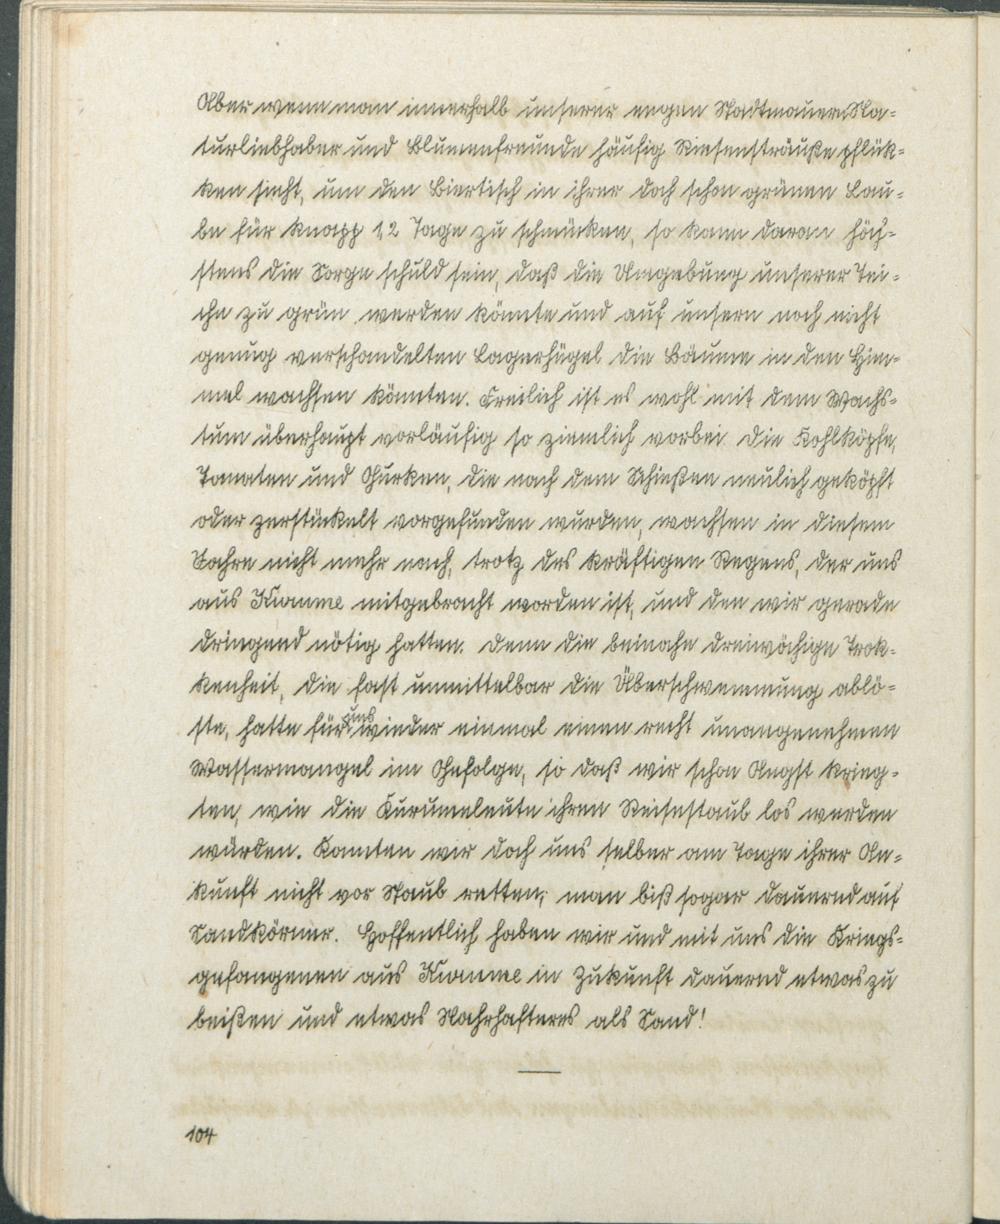 Aber wenn man innerhalb unserer engen Stadtmauern Na-
turliebhaber und Blumenfreunde häufig Riesensträuße pflük-
ken sieht, um den Biertisch in ihrer doch schon grünen Lau-
be für knapp 1,2 Tage zu schmücken, so kann daran höch-
stens die Sorge schuld sein, daß die Umgebung unserer Tei-
che zu grün werden könnte und auf unsern noch nicht
genug verschandelten Lagerhügel die Bäume in den Him-
mel wachsen könnten. Freilich ist es wohl mit dem Wachs-
tum überhaupt vorläufig so ziemlich vorbei. Die Kohlköpfe,
Tomaten und Gurken, die nach dem Schießen neulich geköpft
oder zerstückelt vorgefunden wurden, wachsen in diesem
Jahre nicht mehr nach, trotz des kräftigen Regens, der uns
aus Kurume mitgebracht worden ist, und den wir gerade
dringend nötig hatten. Denn die beinahe dreiwöchige Trok-
kenheit, die fast unmittelbar die Überschwemmung ablö-
ste, hatte für uns wieder einmal einen recht unangenehmen
Wassermangel im Gefolge, so daß wir schon Angst krieg-
ten, wie die Kurumeleute ihren Reisestaub los werden
würden. Konnten wir doch uns selber am Tage ihrer An-
kunft nicht vor Staub retten; man biß sogar dauernd auf
Sandkörner. Hoffentlich haben wir und mit uns die Kriegs-
gefangenen aus Kurume in Zukunft dauernd etwas zu
beißen und etwas Nahrhafteres als Sand!
104